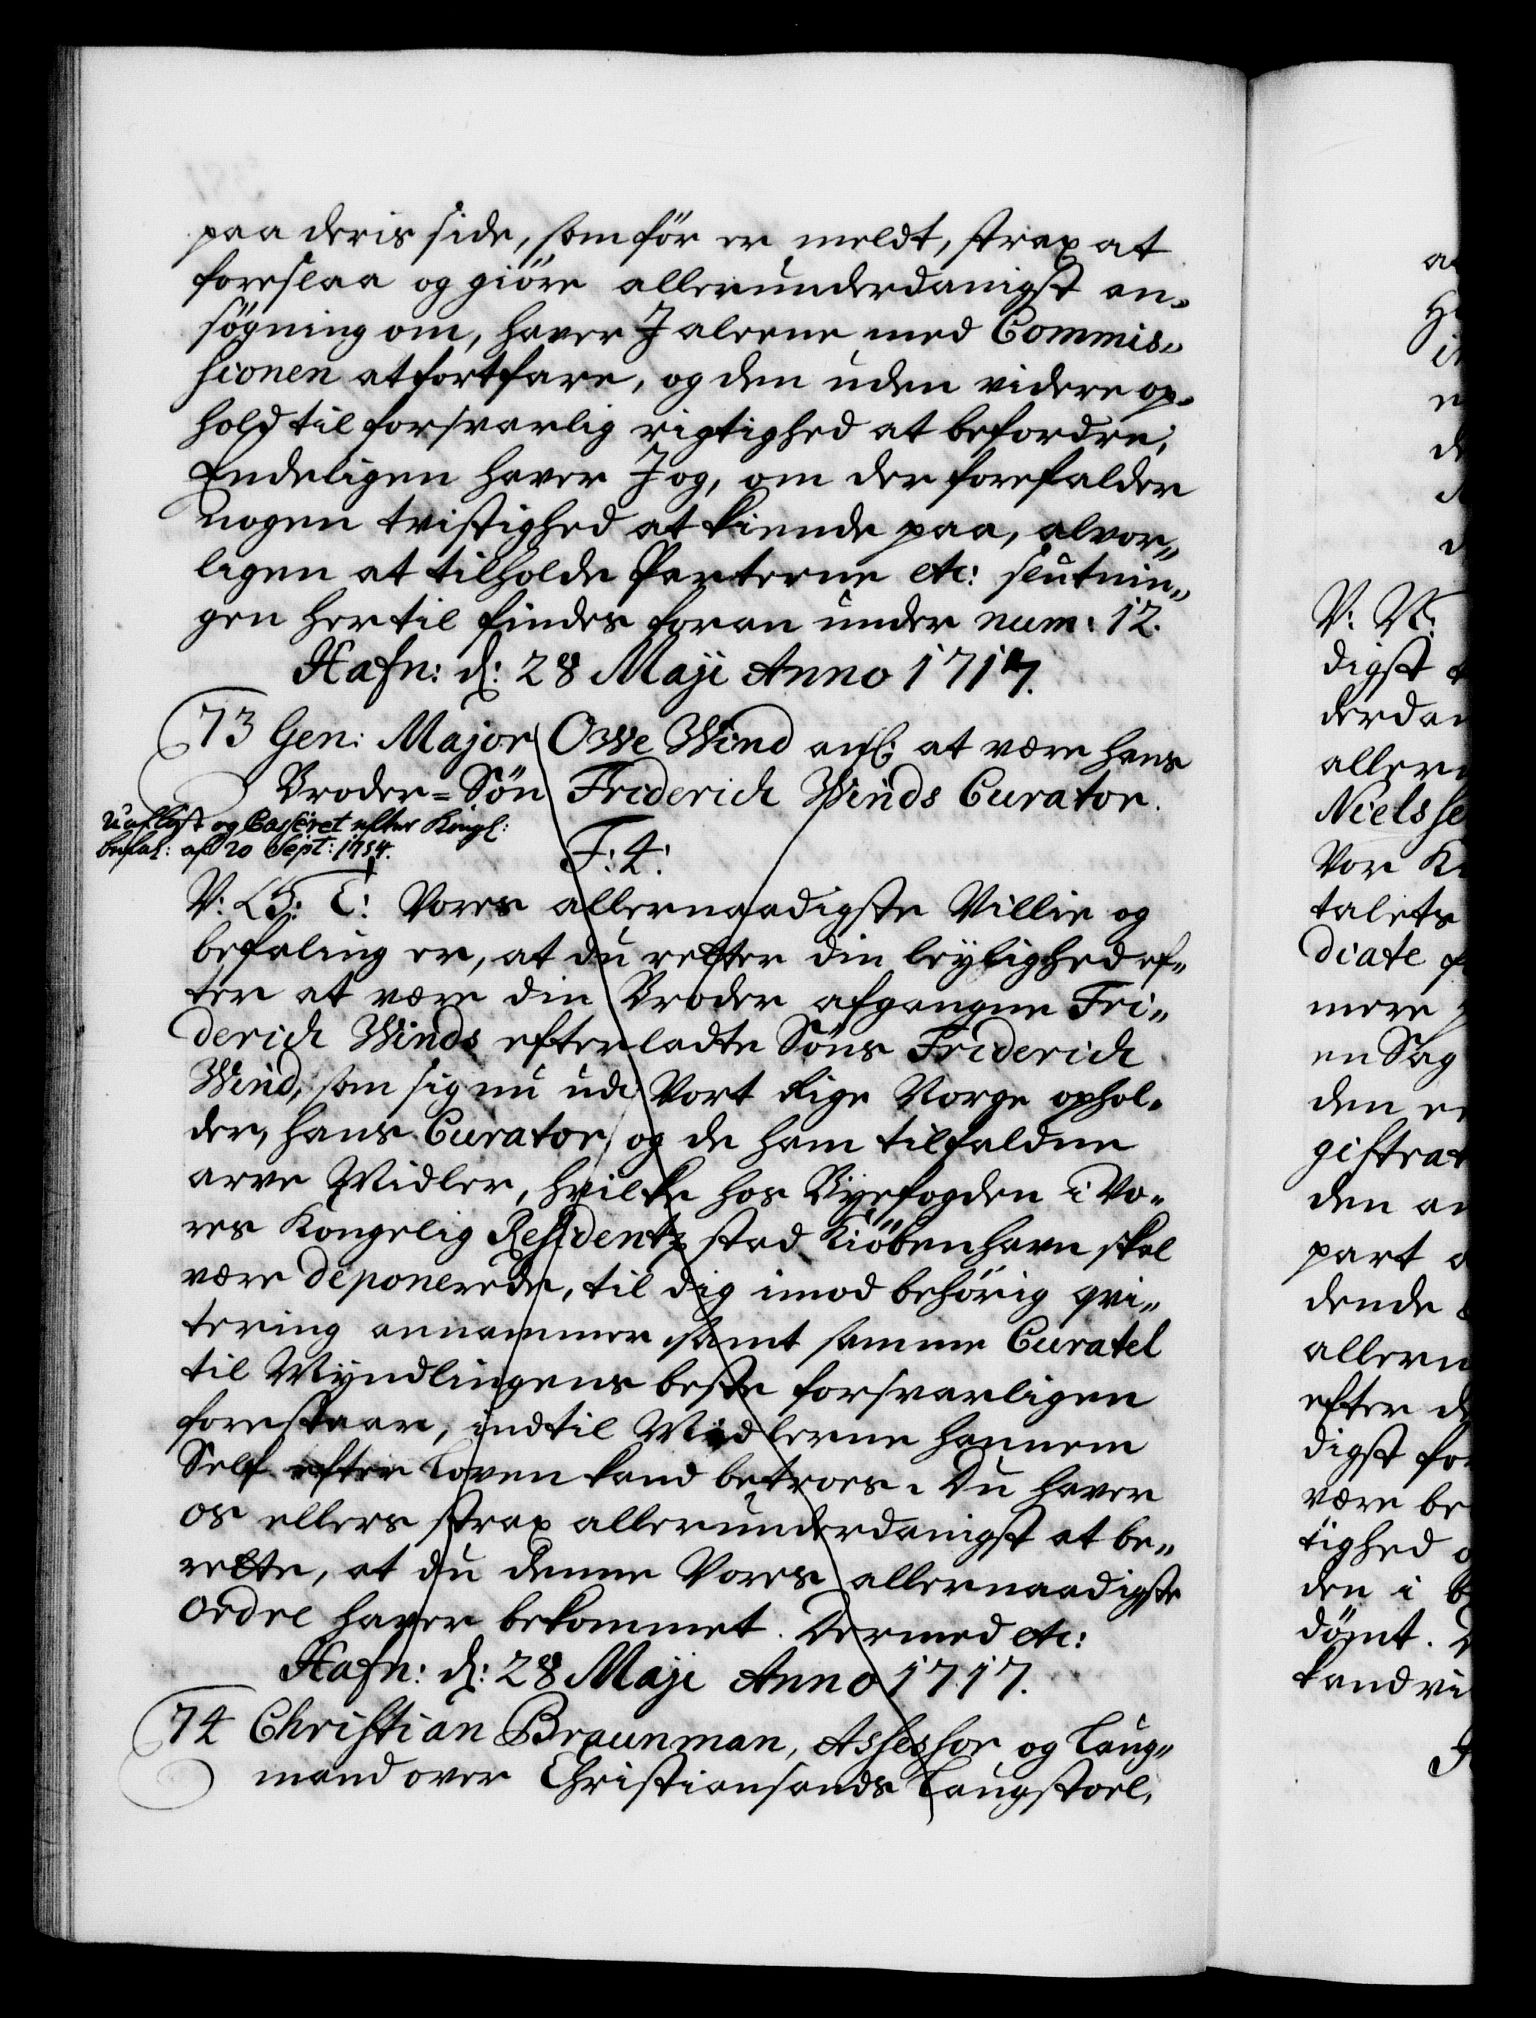 paa deris side, som før er meldt, strax at
foreslaa og giøre allerunderdanigst an„
søgning om, haver I aleene med Commis„
sionen at fortfare, og den uden videre op„
hold til forsvarlig rigtighed at befordre,
Endeligen haver I og, om der forefalder
nogen tvistighed at kiende paa, alvor„
ligen at tilholde Parterne etc: slutnin„
gen hertil findes foran under num: 12.
Hafn: d: 28 Maji Anno 1717.
73 Gen: Major Owe Wind anl: at være hans
Broder=Søn Friderich Winds Curator.
Uafløst og Casseret efter Kongl:
befal: af 20 Sept: 1754.
F: 4:
V: G: T: Vores allernaadigste Villie og
befaling er, at du retter din leylighed ef„
ter at være din Broder afgangne Fri„
derich Winds efterladte Søns Friderich
Wind, som sig nu udi Vort Rige Norge ophol„
der, hans Curator, og de ham tilfaldne
arve Midler, hvilke hos Byefogden i Vo„
res Kongelig Residentz stad Kiöbenhavn skal
være deponerede, til dig imod behørig qvi„
tering annammer samt samme Curatel
til Myndlingens beste forsvarligen
forestaar, indtil Midlerne hannem
Self efter Loven kand betroes. Du haver
os ellers strax allerunderdanigst at be„
rette, at du denne Vores allernaadigste
Ordre haver bekommet. Dermed etc:
Hafn: d: 28 Maji Anno 1717.
74 Christian Braunman, Assessor og Laug„
mand over Christiansands Laugstoel,
V: N:
digst
allern
Nielsse
Vor
talets
diate
mere
en Sag
den
den
part
dende
allern
efter
digst for
være be
tighed
den i
dömt.
kand vi